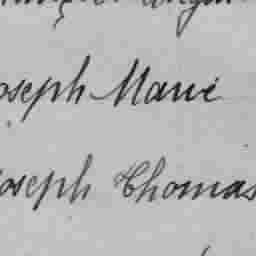 oseph Marie
oseph Thomas